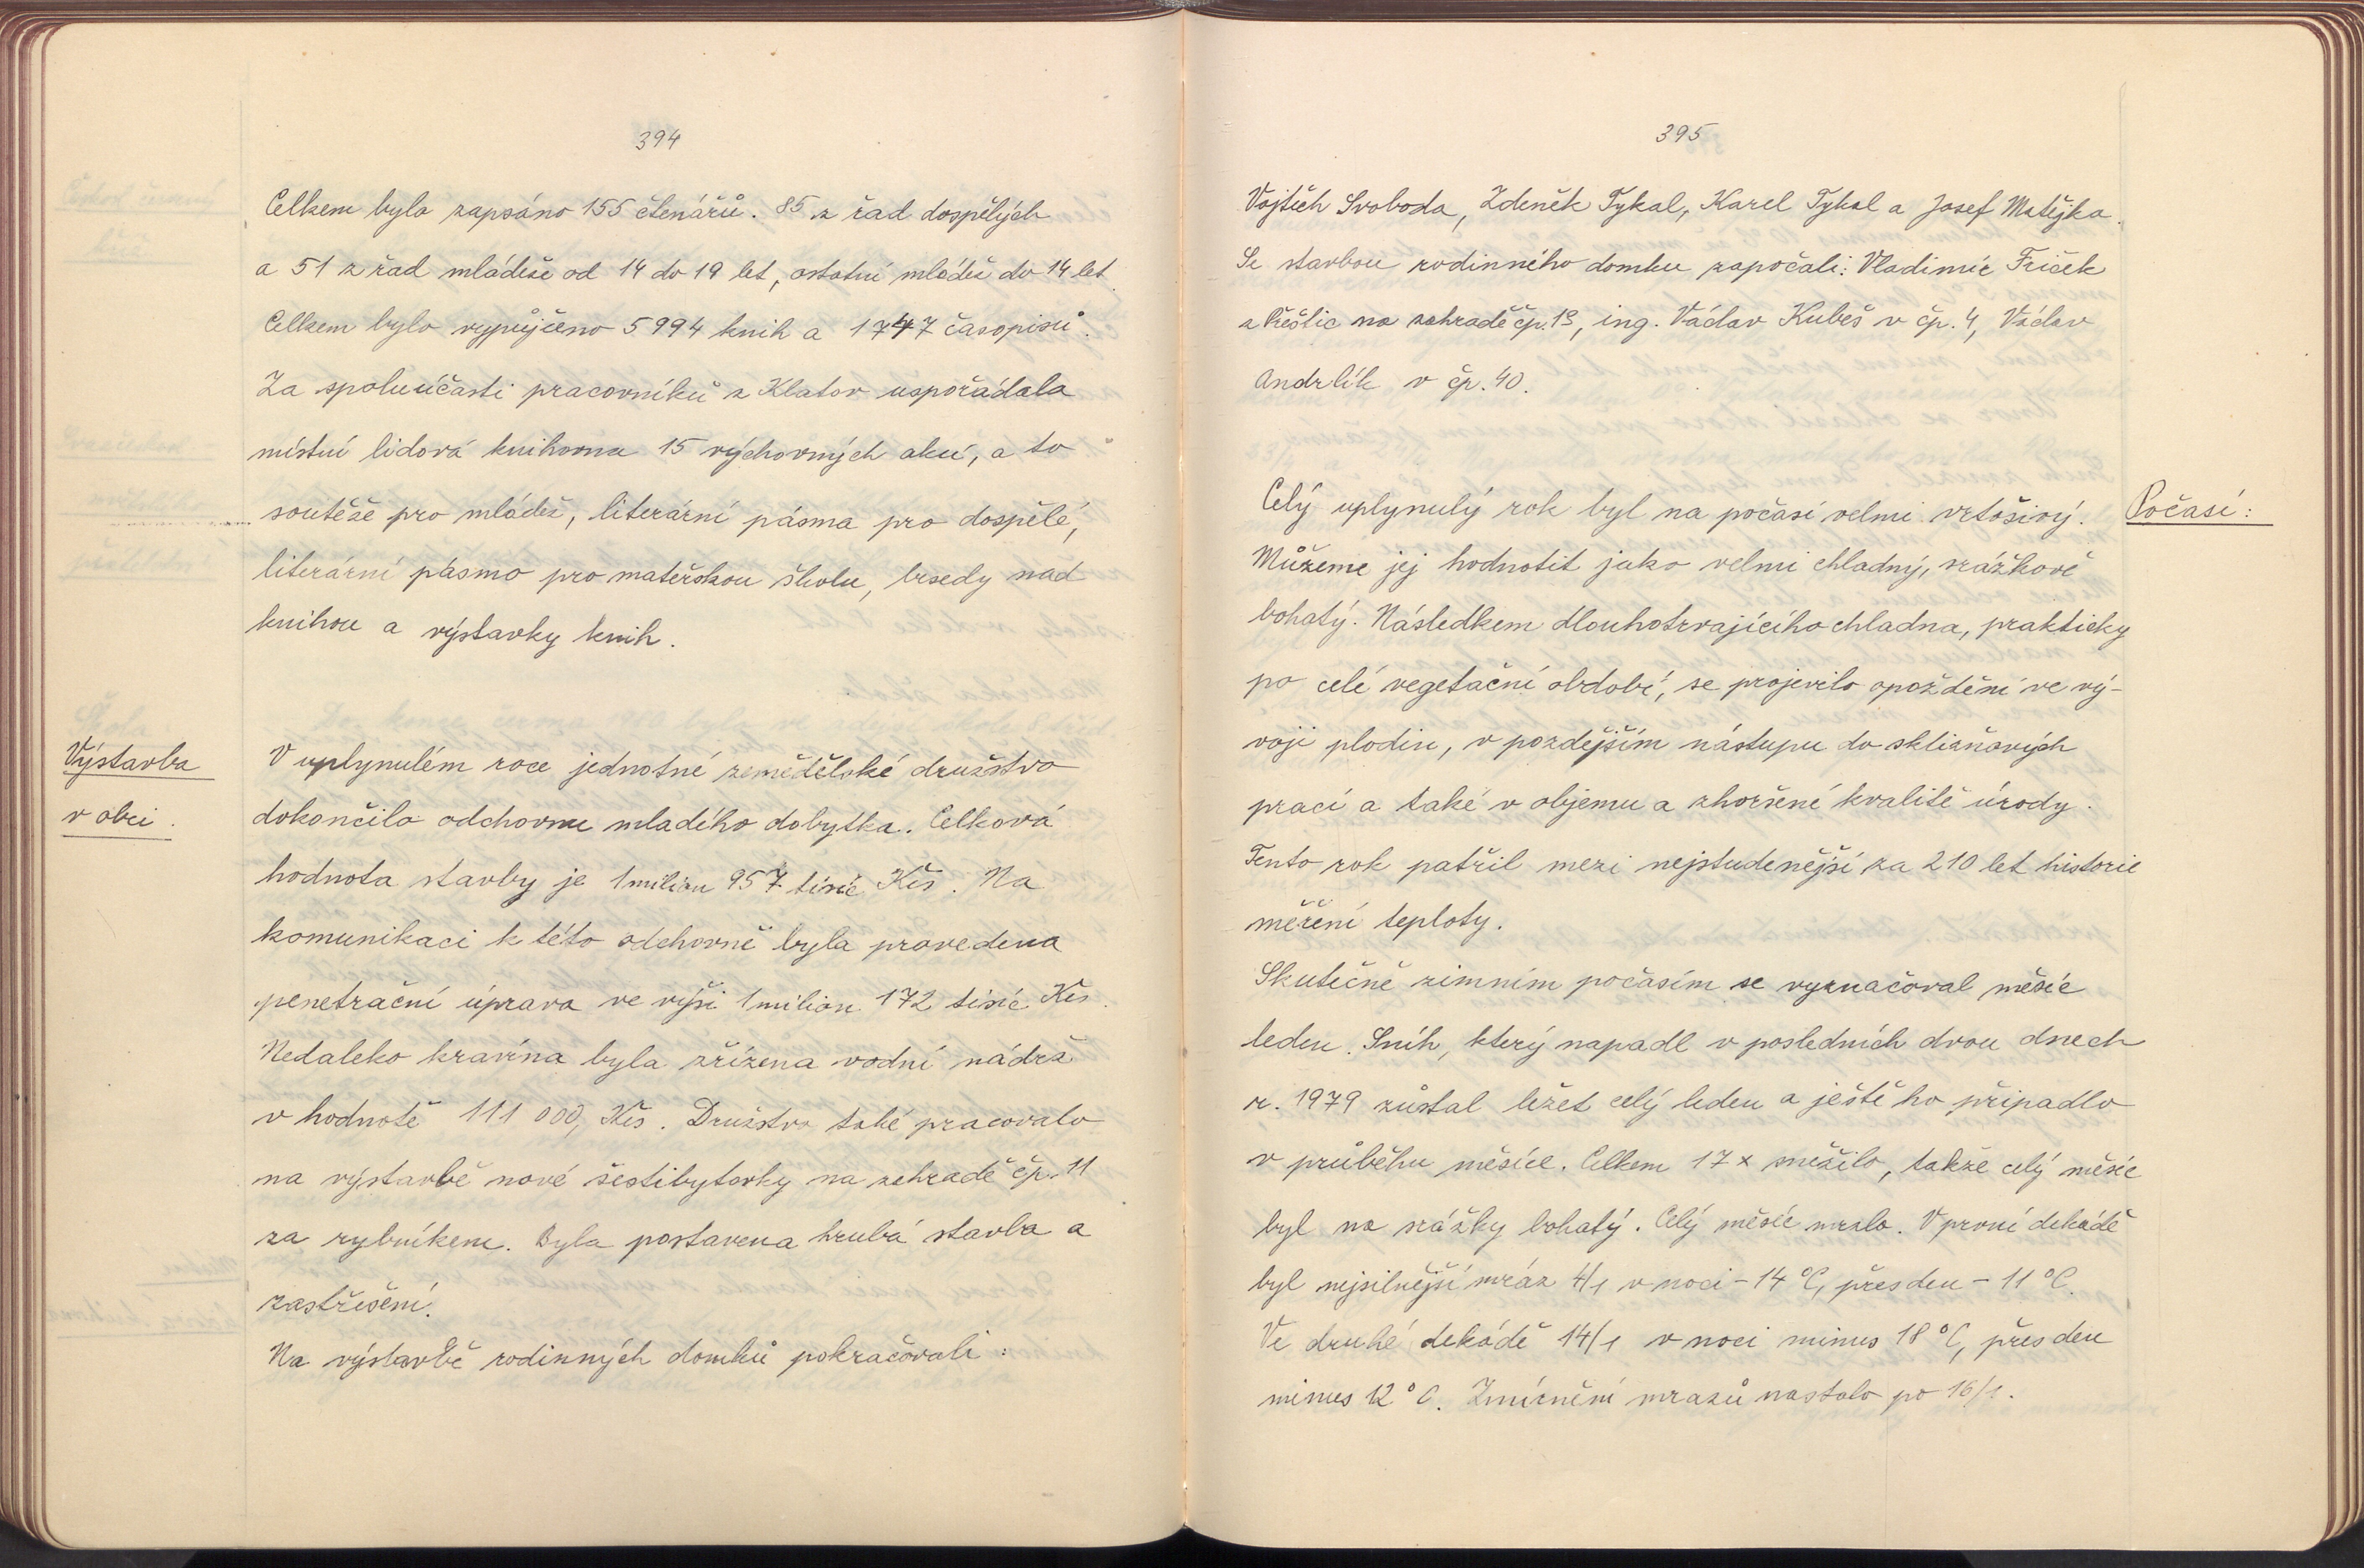 394
Celkem bylo zapsáno 155 čtenářů. 85 z řad dospělých
a 51 z řad mládeže od 14 do 19 let, ostatní mládež do 14 let.
Celkem bylo vypůjčeno 5 994 knih a 1747 časopisů.
Za spoluúčasti pracovníků z Klatov uspořádala
místní lidová knihovna 15 výchovných akcí, a to
soutěže pro mládež, literární pásma pro dospělé,
literární pásmo pro mateřskou školu, besedy nad
knihou a výstavky knih.
Výstavba
v obci.
V uplynulém roce jednotné zemědělské družstvo
dokončilo odchovnu mladého dobytka. Celková
hodnota stavby je 1 milion 957 tisíc Kčs. Na
komunikaci k této odchovně byla provedena
penetrační úprava ve výši 1 milion 172 tisíc Kčs.
Nedaleko kravína byla zřízena vodní nádrž
v hodnotě 111 000, Kčs. Družstvo také pracovalo
na výstavbě nové šestibytovky na zahradě čp. 11
za rybníkem. Byla postavena hrubá stavba a
zastřešení.
Na výstavbě rodinných domků pokračovali:
395
Vojtěch Svoboda, Zdeněk Tykal, Karel Tykal a Josef Matějka.
Se stavbou rodinného domku započali: Vladimír Friček
z Přeštic na zahradě čp. 13, ing. Václav Kubeš v čp. 4, Václav
Andrlík v čp. 40.
Počasí:
Celý uplynulý rok byl na počasí velmi vrtošivý.
Můžeme jej hodnotit jako velmi chladný, srážkově
bohatý. Následkem dlouhotrvajícího chladna, prakticky
po celé vegetační období, se projevilo opoždění ve vý-
voji plodin, v pozdějším nástupu do sklizňových
prací a také v objemu a zhoršené kvalitě úrody.
Tento rok patřil mezi nejstudenější za 210 let historie
měření teploty.
Skutečně zimním počasím se vyznačoval měsíc
leden. Sníh, který napadl v posledních dvou dnech
r. 1979 zůstal ležet celý leden a ještě ho připadlo
v průběhu měsíce. Celkem 17 x sněžilo, takže celý měsíc
byl na srážky bohatý. Celý měsíc mrzlo. V první dekádě
byl nejsilnější mráz 4/1 v noci - 14 °C, přes den - 11 °C.
Ve druhé dekádě 14/1 v noci minus 18 °C, přes den
minus 12 °C. Zmírnění mrazů nastalo po 16/1.